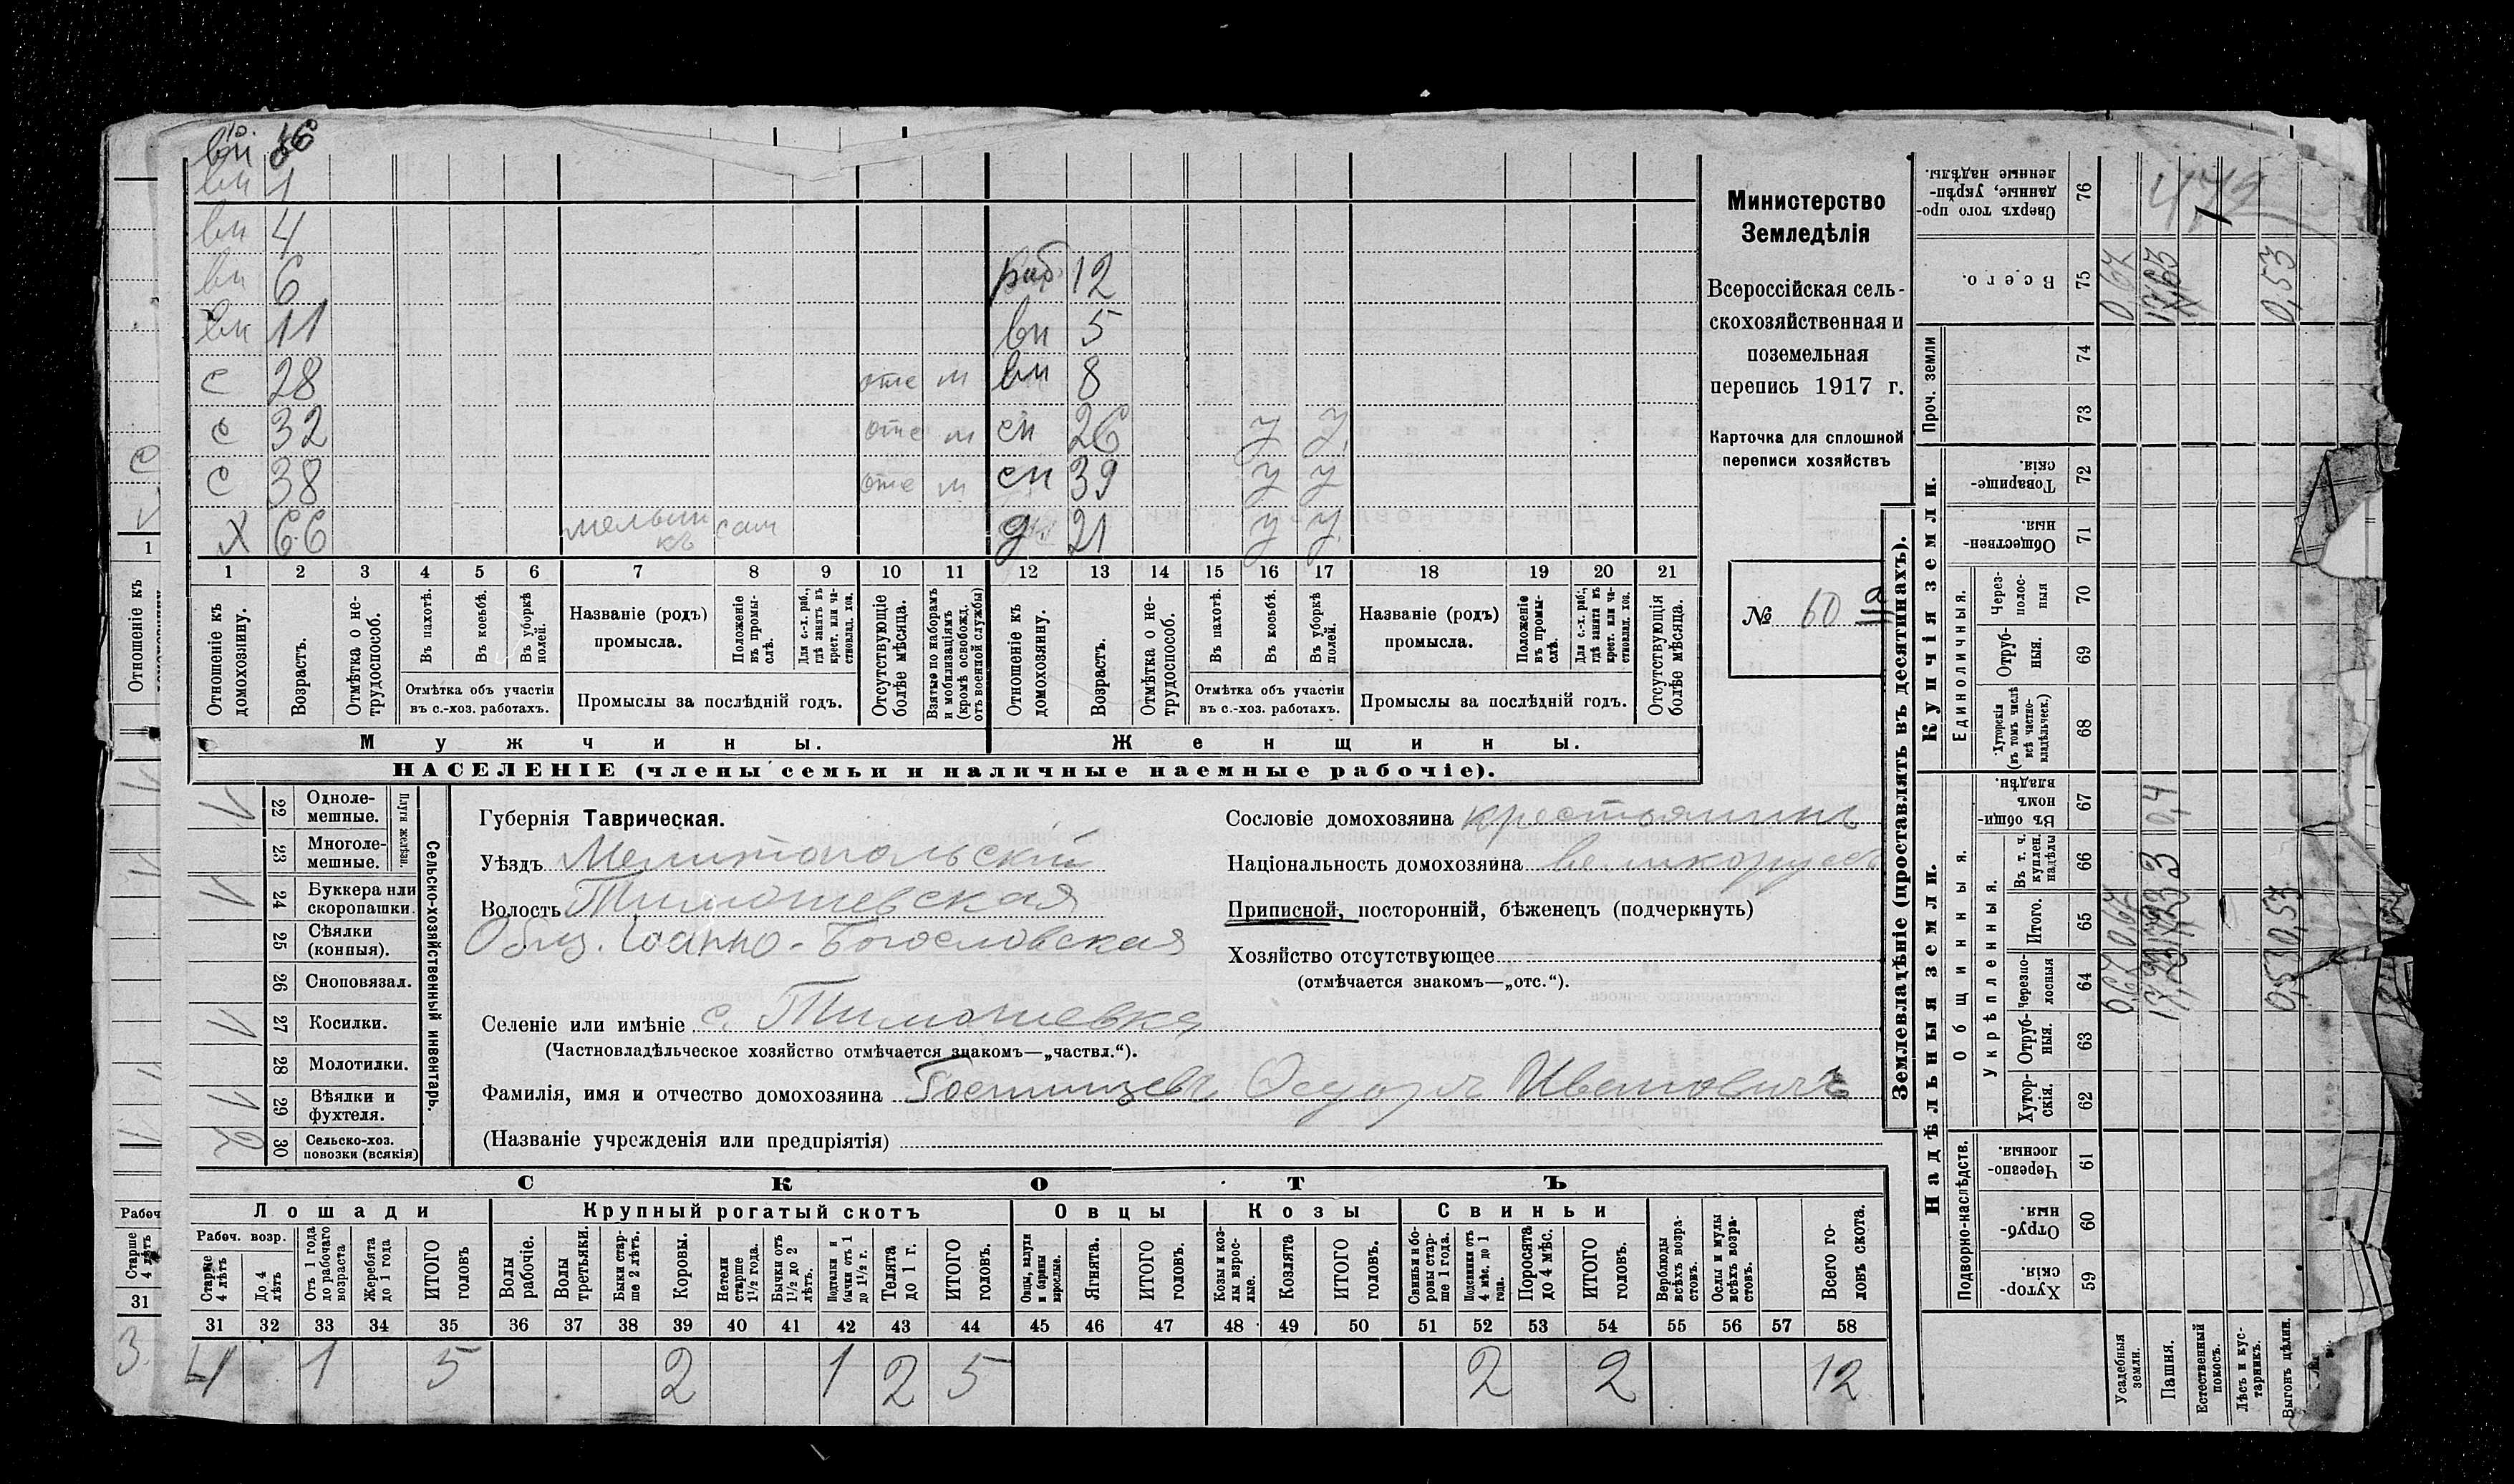 вн 4
вн 6 раб 12
вн 11 вн 5
с 28 отс м вн 8
с 32 отс м сн 26 у у
с 38 отс м сн 39 у у
х 66 мельникъ сам д 21 у у
1 2 3 4 5 6 7 8 9 10 11 12 13 14 15 16 17 18 19 20 21
Отношеніе къ домохозяину.
Возрастъ.
Отмѣтка о не-трудоспособ.
Въ пахотѣ.
Въ косьбѣ.
Въ уборкѣ полей.
Отмѣтка объ участіи
въ с.-хоз. работахъ.
Названіе (родъ)
промысла.
Положеніе въ промы-слѣ.
Для с.-х. раб., гдѣ занятъ въ крест. или ча-стновлад. хоз.
Промыслы за послѣдній годъ.
Отсутствующіе болѣе мѣсяца.
Взятые по наборамъ и мобилизаціямъ (кромѣ освобожд. отъ военной службы)
Отношеніе къ домохозяину.
Возрастъ.
Отмѣтка о не-трудоспособ.
Въ пахотѣ.
Въ косьбѣ.
Въ уборкѣ полей.
Отмѣтка объ участіи
въ с.-хоз. работахъ.
Названіе (родъ)
промысла.
Положеніе въ промы-слѣ.
Для с.-х. раб., гдѣ занята въ крест. или ча-стновлад. хоз.
Промыслы за послѣдній годъ.
Отсутствующія болѣе мѣсяца.
Мужчины.
Женщины.
НАСЕЛЕНІЕ (члены семьи и наличные наемные рабочіе).
Министерство
Земледѣлія
Всероссійская сель-
скохозяйственная и
поземельная
перепись 1917 г.
Карточка для сплошной
переписи хозяйствъ
№ 60 а
22 Одноле-мешные.
23 Многоле-мешные.
Плуги желѣзн.
24 Буккера или скоропашки.
25 Сѣялки (конныя).
26 Сноповязал.
27 Косилки.
28 Молотилки.
29 Вѣялки и фухтеля.
30 Сельско-хоз. повозки (всякія)
Сельско-хозяйственный инвентарь.
Губернія Таврическая.
Уѣздъ Мелитопольскій
Волость Тимошевская
Общ. Іоанно-Богословская
Селеніе или имѣніе с. Тимошевка
(Частновладѣльческое хозяйство отмѣчается знакомъ—„частвл.“).
Фамилія, имя и отчество домохозяина Гостищевъ Ѳедоръ Ивановичъ
(Названіе учрежденія или предпріятія)
Сословіе домохозяина крестьянинъ
Національность домохозяина великорусс
Приписной, посторонній, бѣженецъ (подчеркнуть)
Хозяйство отсутствующее
(отмѣчается знакомъ—„отс.“).
СКОТЪ
Лошади Крупный рогатый скотъ Овцы Козы Свиньи
Рабоч. возр.
Старше 4 лѣтъ
До 4 лѣтъ
Отъ 1 года до рабочаго возраста
Жеребята до 1 года
ИТОГО головъ
Волы рабочіе.
Волы третьяки.
Быки стар-ше 2 лѣтъ.
Коровы.
Нетели старше 1½ года.
Бычки отъ 1½ до 2 лѣтъ.
Подтелки и бычки отъ 1 до 1½ г.
Телята до 1 г.
ИТОГО головъ.
Овцы, валухи и бараны взрослые.
Ягнята.
ИТОГО головъ.
Козы и коз-лы взрос-лые.
Козлята
ИТОГО головъ.
Свиньи и бо-ровы стар-ше 1 года.
Подсвинки отъ 4 мѣс. до 1 года.
Поросята до 4 мѣс.
ИТОГО головъ.
Верблюды всѣхъ возра-стовъ.
Ослы и мулы всѣхъ возра-стовъ.
Всего го-ловъ скота.
31 32 33 34 35 36 37 38 39 40 41 42 43 44 45 46 47 48 49 50 51 52 53 54 55 56 57 58
4 1 5 2 1 2 5 2 2 12
Землевладѣніе (проставлять въ десятинахъ).
Сверхъ того про-данные, укрѣп-ленные надѣлы. 76
Всего. 75 0,67 0,53
Купчія земли.
Проч. земли
74
73
Товарище-скія. 72
Обществен-ныя. 71
Единоличныя.
Через-полос-ныя 70
Отруб-ныя. 69
Хуторскія (въ томъ числѣ всѣ частно-владѣльческ.) 68
Надѣльныя земли.
Общинныя.
Въ общи-номъ владѣн. 67 0,4
Укрѣпленныя.
Въ т. ч. куплен. надѣлы 66 3
Итого. 65 0,67 0,53
Черезпо-лосныя 64 0,67 0,53
Отруб-ныя. 63
Хутор-скія. 62
Подворно-наслѣдств.
Черезпо-лосныя. 61
Отруб-ныя. 60
Хутор-скія. 59
Усадебныя земли.
Пашня.
Естественный покосъ.
Лѣсъ и кус-тарникъ.
Выгонъ цѣлин.
С
1
Отношеніе къ
Рабоч
Старше 4 лѣтъ
31
3